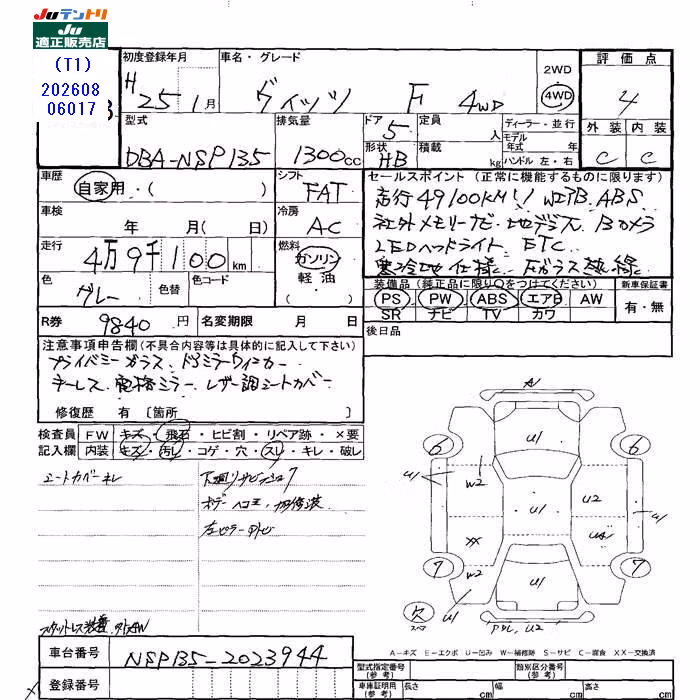 Juテントリ
Ju
適正販売店
(T1)
202608
06017
初度登録年月
H 25 1月
車名・グレード
ヴィッツ F 4WD
2WD
4WD
評価点
4
外装 内装
C C
型式
DBA-NSP135
排気量
1300cc
ドア 5
形状 HB
定員 人
積載 kg
ディーラー・並行
モデル
年式 年
ハンドル 左・右
車歴
自家用・( )
シフト
FAT
車検 年 月( )日
冷房
AC
走行
4万9千100km
燃料
ガソリン
軽油
( )
色
グレー
色替
色コード
セールスポイント (正常に機能するものに限ります)
走行49100KM!! WエアB. ABS
社外メモリーナビ. 地デジTV. Bカメラ
LEDヘッドライト ETC
寒冷地仕様. Fガラス熱線
装備品(純正品に限り○をつけてください)
PS PW ABS エアB AW
SR ナビ TV カワ
新車保証書
有・無
R券 9840円
名変期限 月 日
後日品
注意事項申告欄(不具合内容等は具体的に記入して下さい)
プライバシーガラス. ドアミラーウィンカー
キーレス. 電格ミラー. レザー調シートカバー
修復歴 有〔箇所 〕
検査員
記入欄
FW キズ・飛石・ヒビ割・リペア跡・×要
内装 キズ・汚レ・コゲ・穴・スレ・キレ・破レ
シートカバーキレ
下廻りサビ
ボデーヘコミ.
左ピラー
A
U1
6
6
W2
U1
U1
U1
U2
XX
U1
7
7
W2
U1
U1
欠
U2
スタットレス装着.
A-キズ E-エクボ U-凹み W-補修跡 S-サビ C-腐食 XX-交換済
車台番号 NSP135-2023944
登録番号
型式指定番号
(参考)
類別区分番号
(参考)
車庫証明用
(参考)
長さ cm
幅 cm
高さ cm